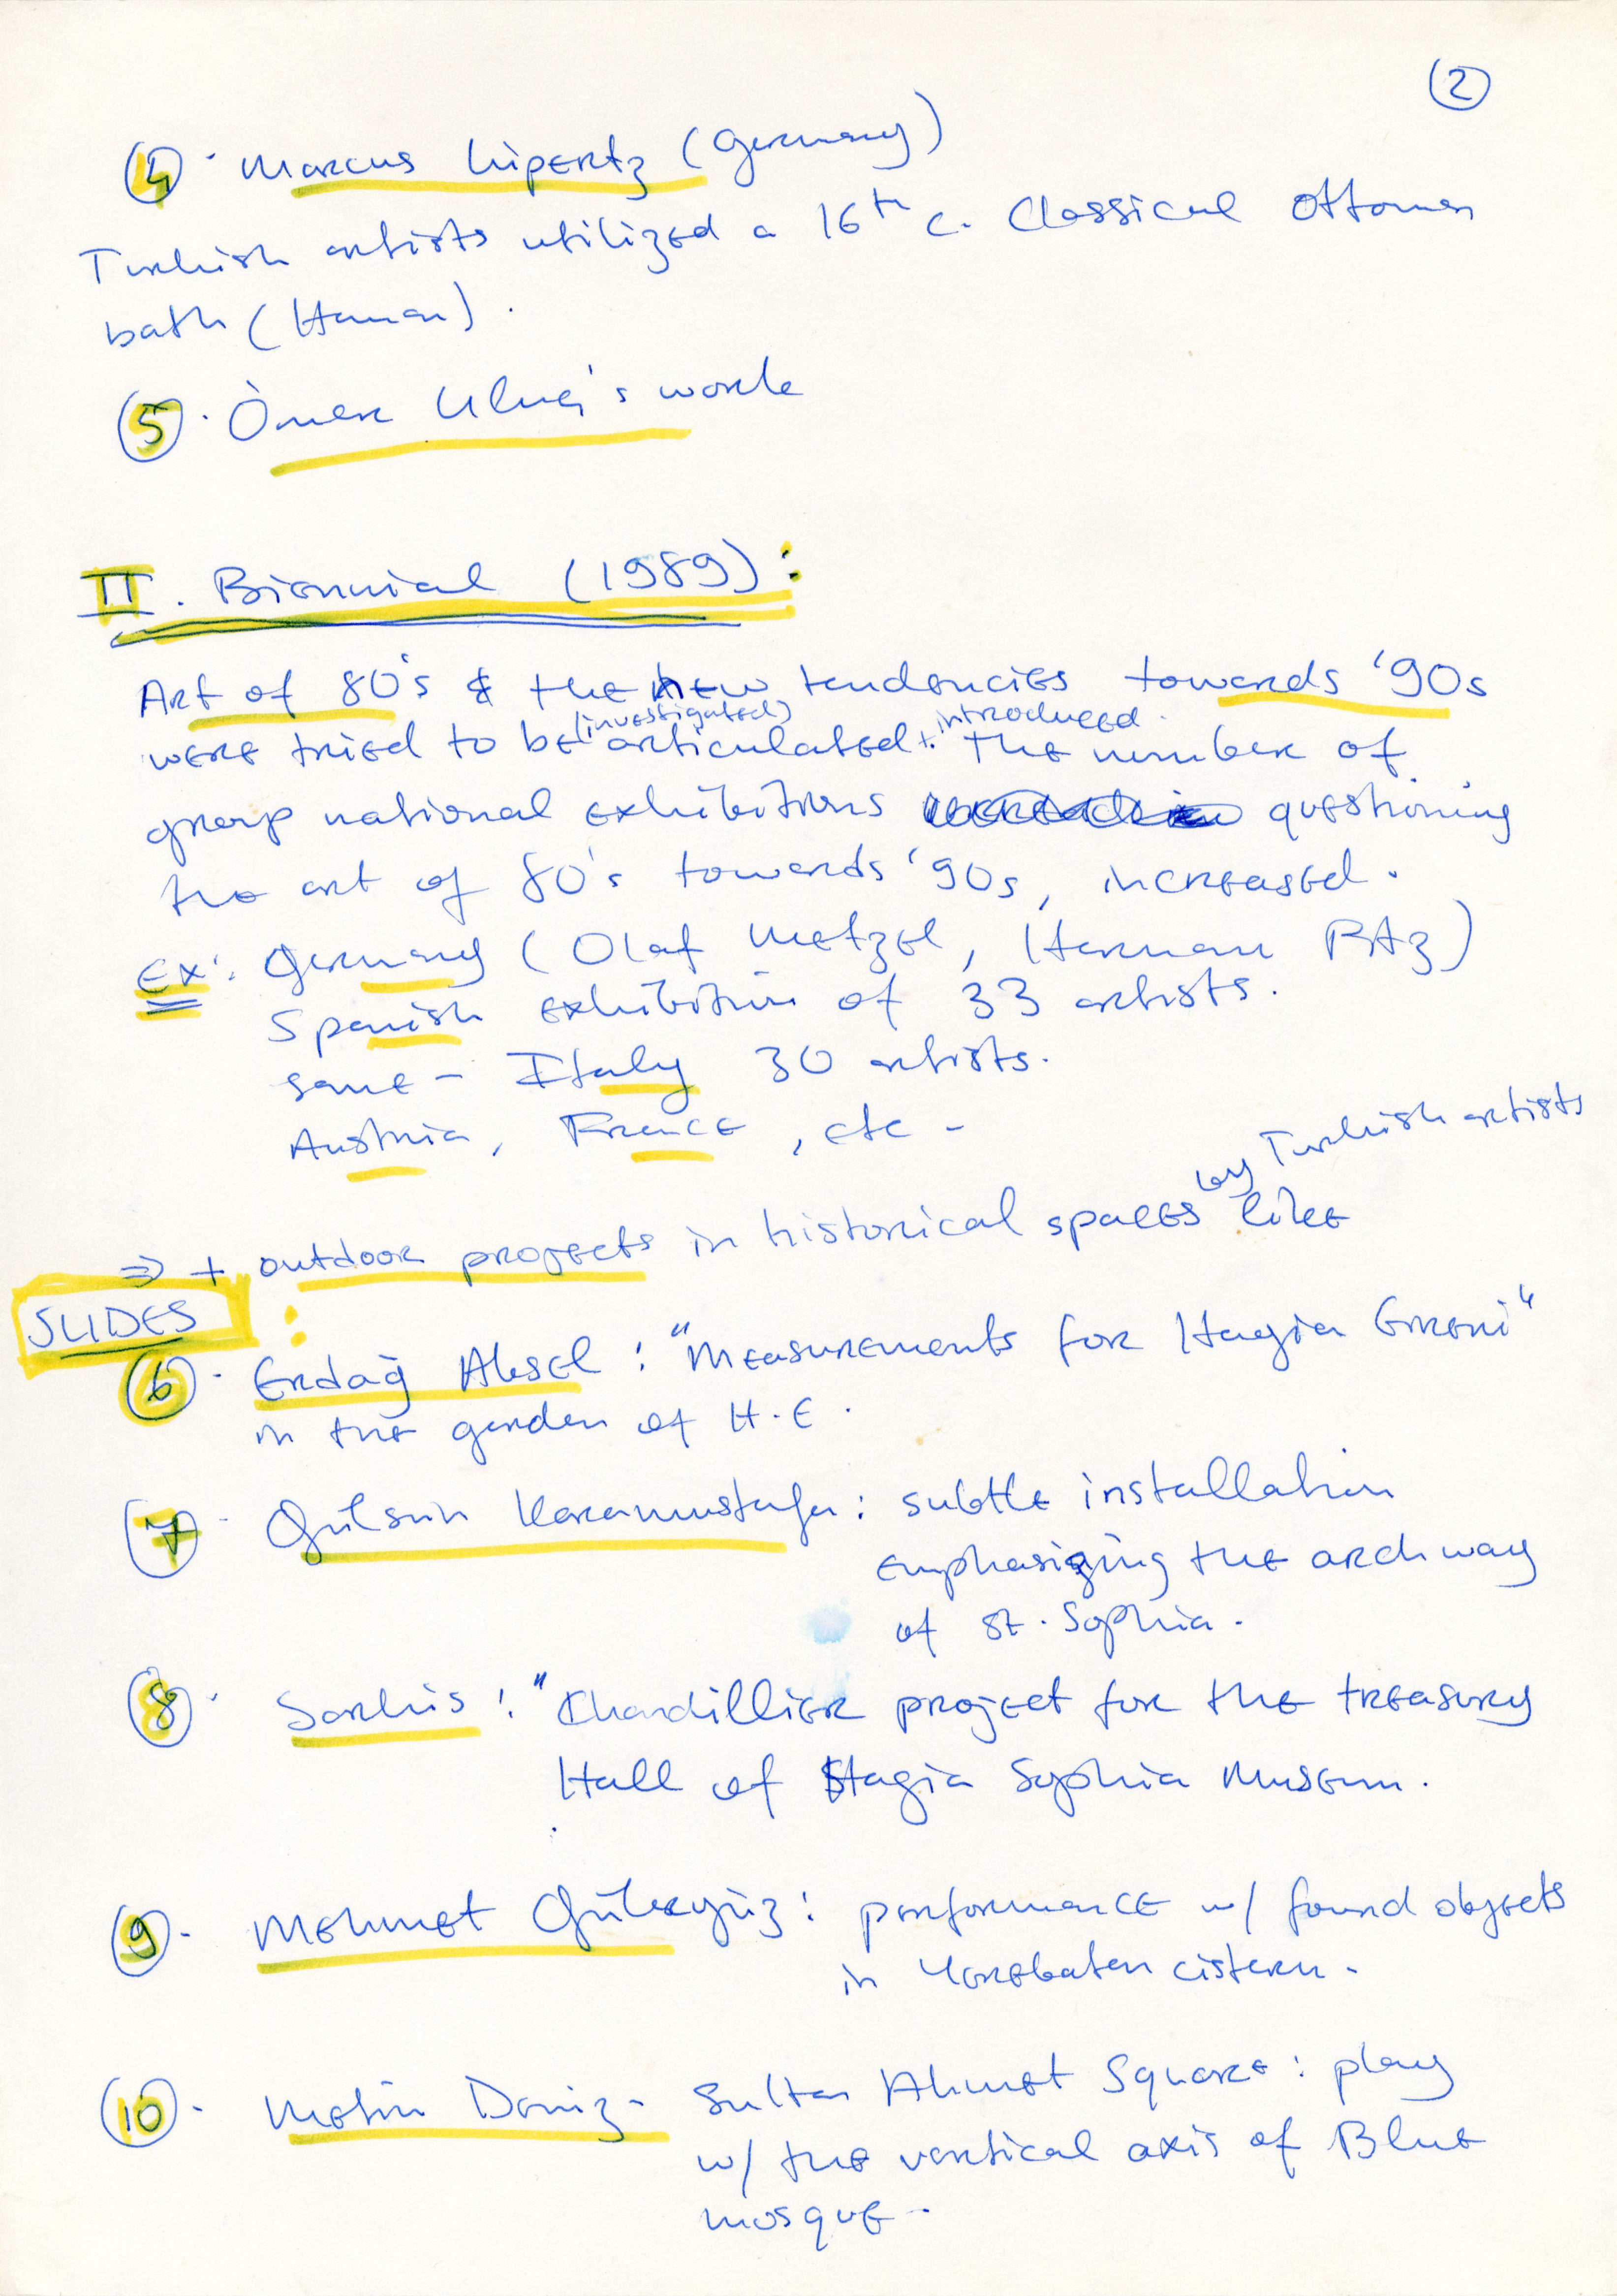 (2)
(4) · Marcus Lipertz (Germany)
Turkish artists utilized a 16th c. Classical Ottoman
bath (Hamam).
(5) · Ömer Uluç's work
II. Biennial (1989):
Art of 80's & the new tendencies towards '90s
(investigated) introduced.
were tried to be articulated +. The number of
group national exhibitions questioning
the art of 80's towards '90s, increased.
Ex: Germany (Olaf Metzel, Herman Pitz)
Spanish exhibition of 33 artists.
same – Italy 30 artists.
Austria, France, etc –
by Turkish artists
⇒ + outdoor projects in historical spaces like
SLIDES :
(6) · Erdağ Aksel : "Measurements for Hagia Eireni"
in the garden of H.E.
(7) · Gülsün Karamustafa : subtle installation
emphasizing the archway
of St. Sophia.
(8) · Sarkis : "Chandillier project for the treasury
Hall of Hagia Sophia Museum.
(9) · Mehmet Güleryüz : performance w/ found objects
in Yerebatan cistern.
(10) · Metin Deniz – Sultan Ahmet Square : play
w/ the vertical axis of Blue
mosque –